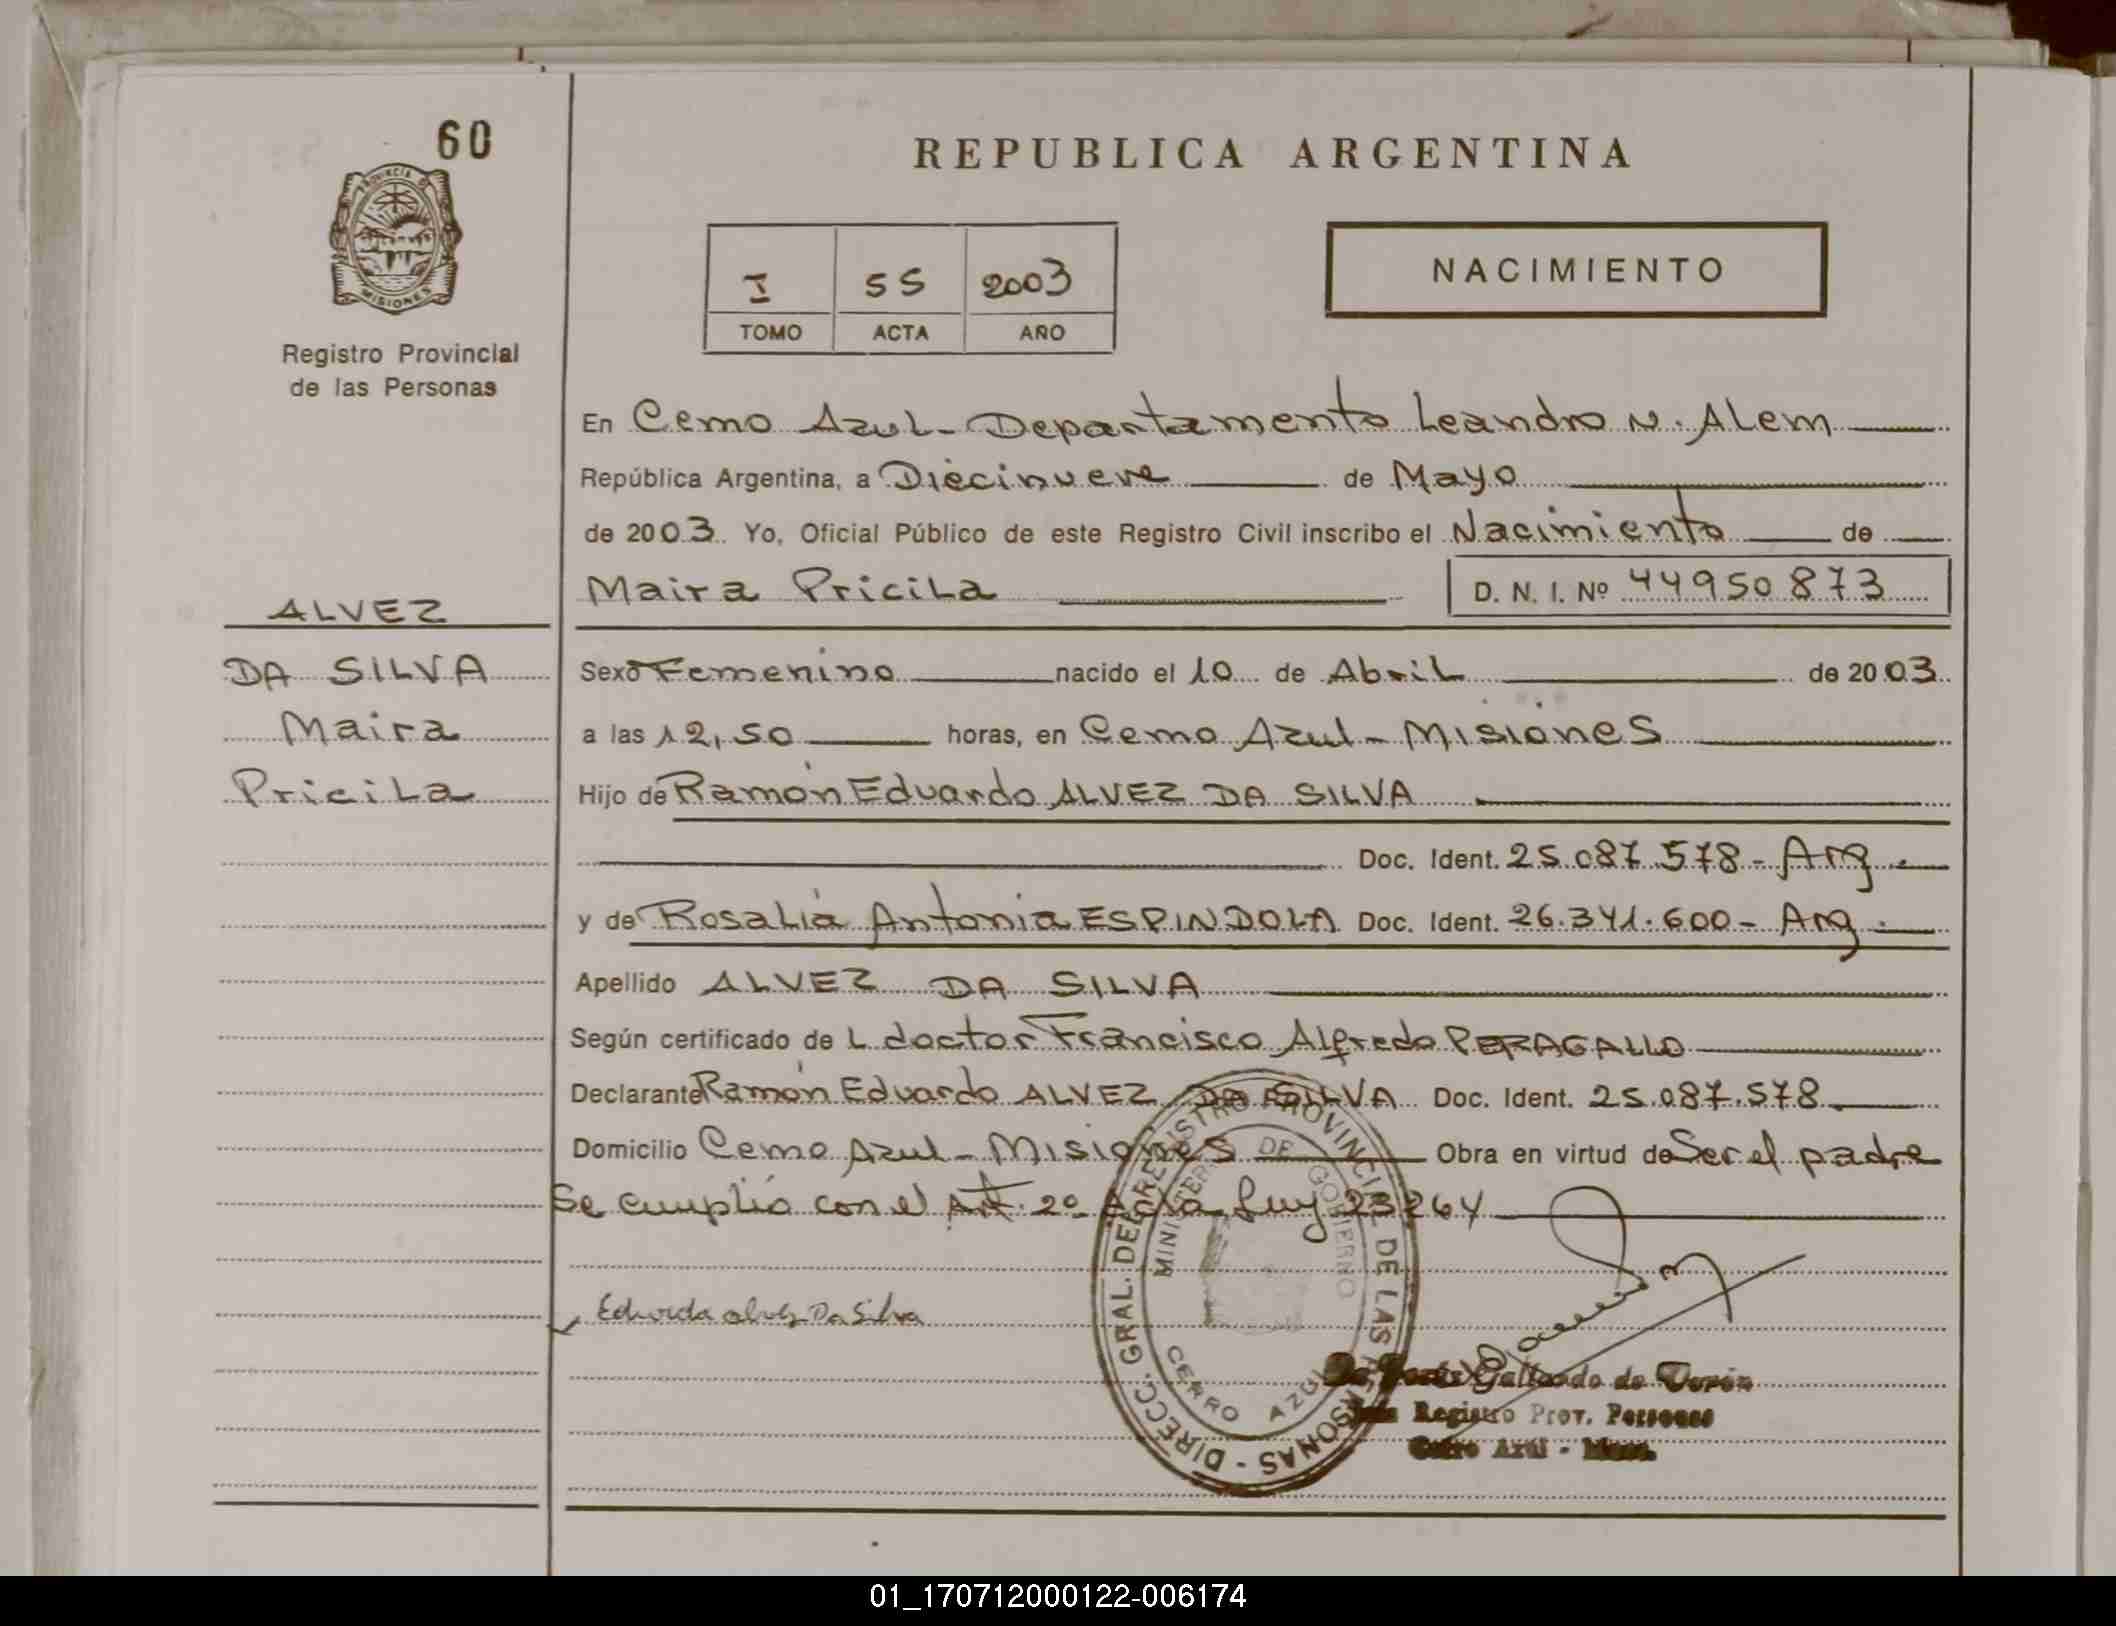 60
PROVINCIA DE
MISIONES
Registro Provincial
de las Personas
REPUBLICA ARGENTINA
I 55 2003
TOMO ACTA AÑO
NACIMIENTO
En Cerro Azul - Departamento Leandro N. Alem
República Argentina, a Diecinueve de Mayo
de 2003. Yo, Oficial Público de este Registro Civil inscribo el Nacimiento de
Maira Pricila D. N. I. Nº 44950873
ALVEZ
DA SILVA
Maira
Pricila
Sexo Femenino nacido el 10 de Abril de 2003
a las 12,50 horas, en Cerro Azul - Misiones
Hijo de Ramón Eduardo ALVEZ DA SILVA
Doc. Ident. 25.087.578 - Arg.
y de Rosalía Antonia ESPINDOLA Doc. Ident. 26.341.600 - Arg.
Apellido ALVEZ DA SILVA
Según certificado de L doctor Francisco Alfredo PERAGALLO
Declarante Ramón Eduardo ALVEZ DA SILVA Doc. Ident. 25.087.578
Domicilio Cerro Azul - Misiones Obra en virtud de Ser el padre
Se cumplió con el Art. 2º de la Ley 23264
DIRECC. GRAL. DEL REGISTRO PROVINCIAL DE LAS PERSONAS -
MINISTERIO DE GOBIERNO
CERRO AZUL
Alvez Da Silva
Gallardo de
Registro Prov. Personas
Cerro Azul - Mnes.
01_170712000122-006174